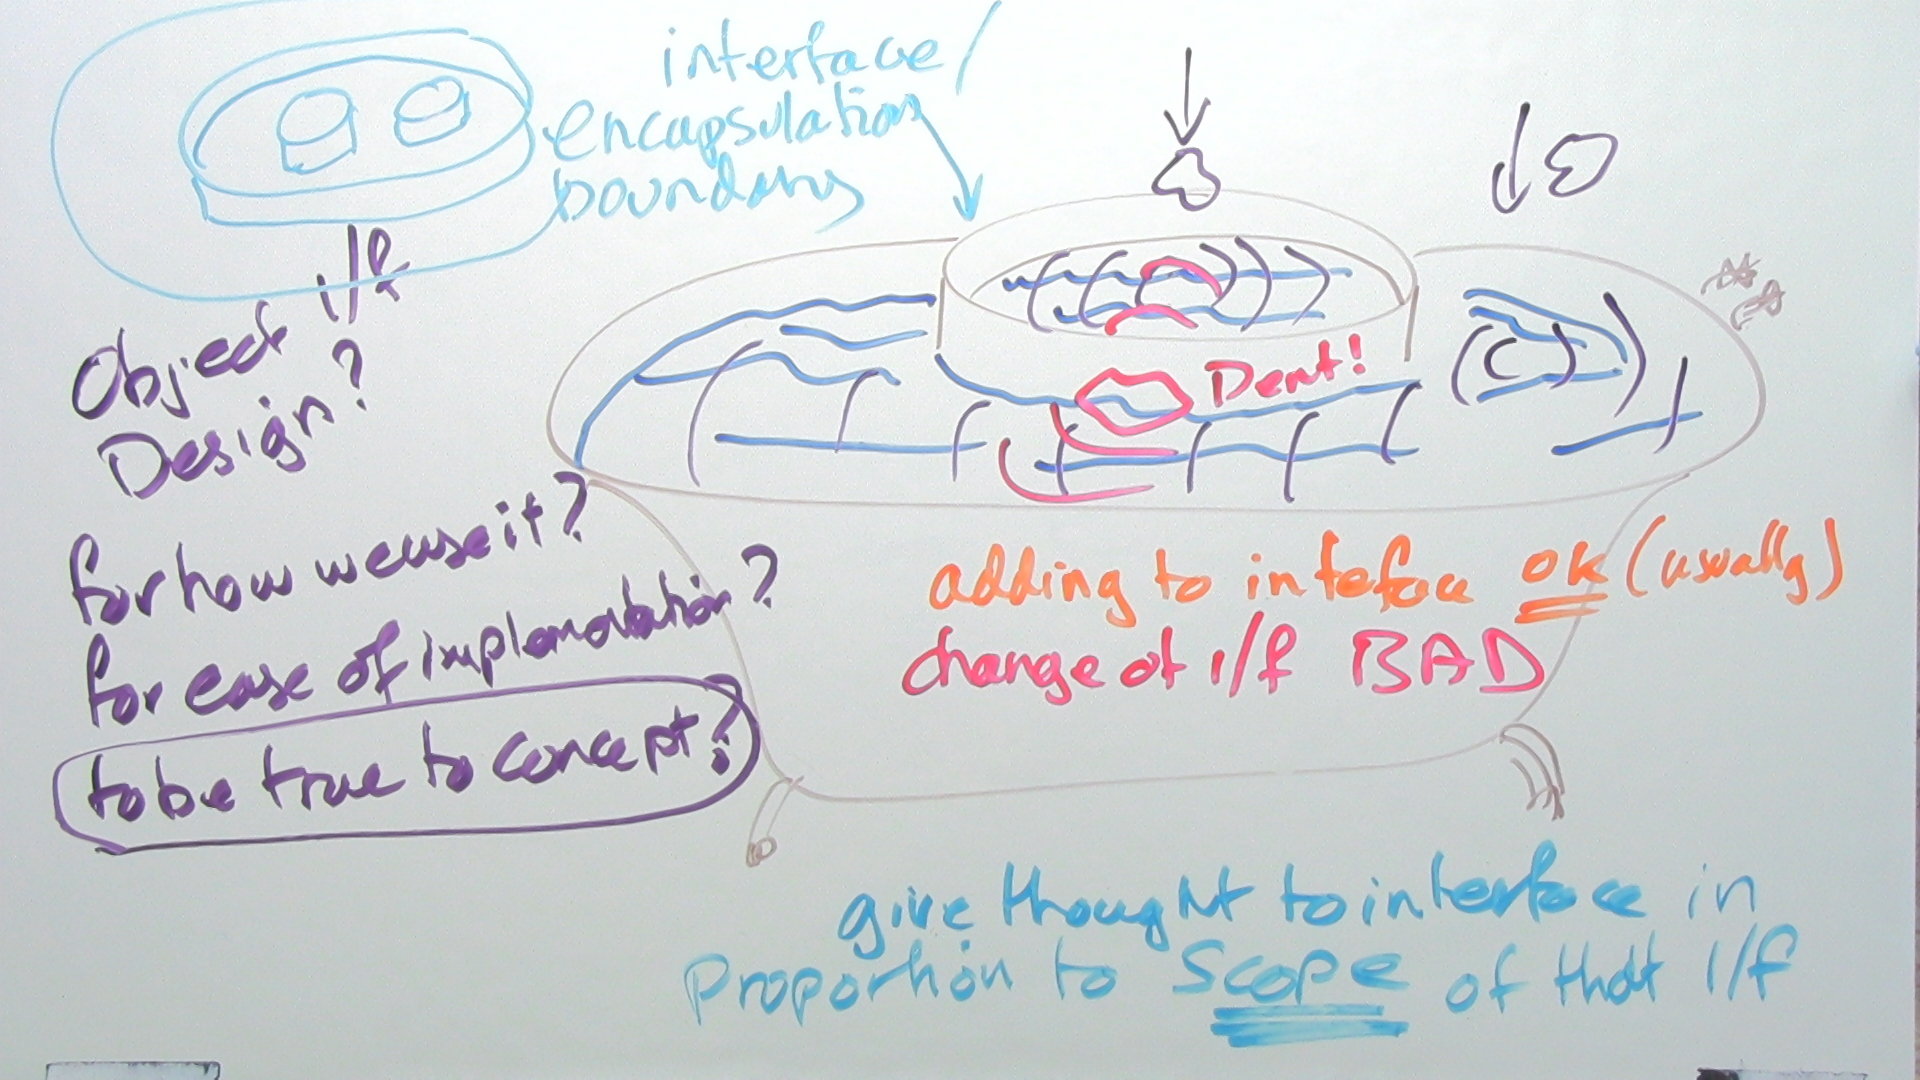 interface/
encapsulation
boundary
Object i/f
Design?
for how we use it?
for ease of implemotation?
to be true to concept?
Dent!
adding to inteface ok (usually)
change of i/f BAD
give thought to interface in
proportion to SCOPE of that i/f